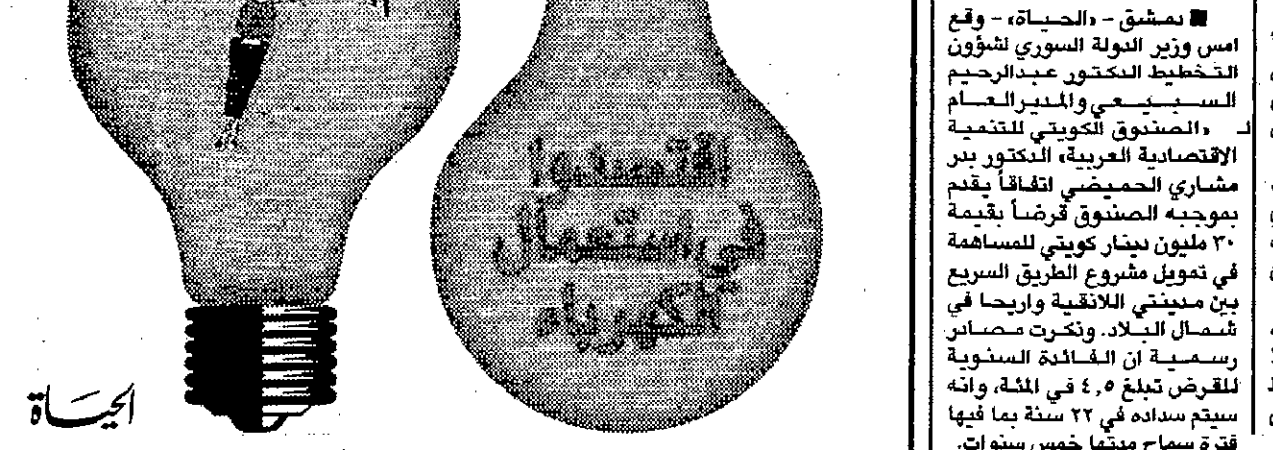 ■ دمشق - «الحياة» - وقع
امس وزير الدولة السوري لشؤون
التخطيط الدكتور عبدالرحيم
السبيعي والمدير العام
لـ «الصندوق الكويتي للتنمية
الاقتصادية العربية» الدكتور بدر
مشاري الحميضي اتفاقاً يقدم
بموجبه الصندوق قرضاً بقيمة
٣٠ مليون دينار كويتي للمساهمة
في تمويل مشروع الطريق السريع
بين مدينتي اللاذقية واريحا في
شمال البلاد. وذكرت مصادر
رسمية ان الفائدة السنوية
للقرض تبلغ ٤,٥ في المئة، وانه
سيتم سداده في ٢٢ سنة بما فيها
فترة سماح مدتها خمس سنوات.
اقتصدوا
في استعمال
الكهرباء
الحياة